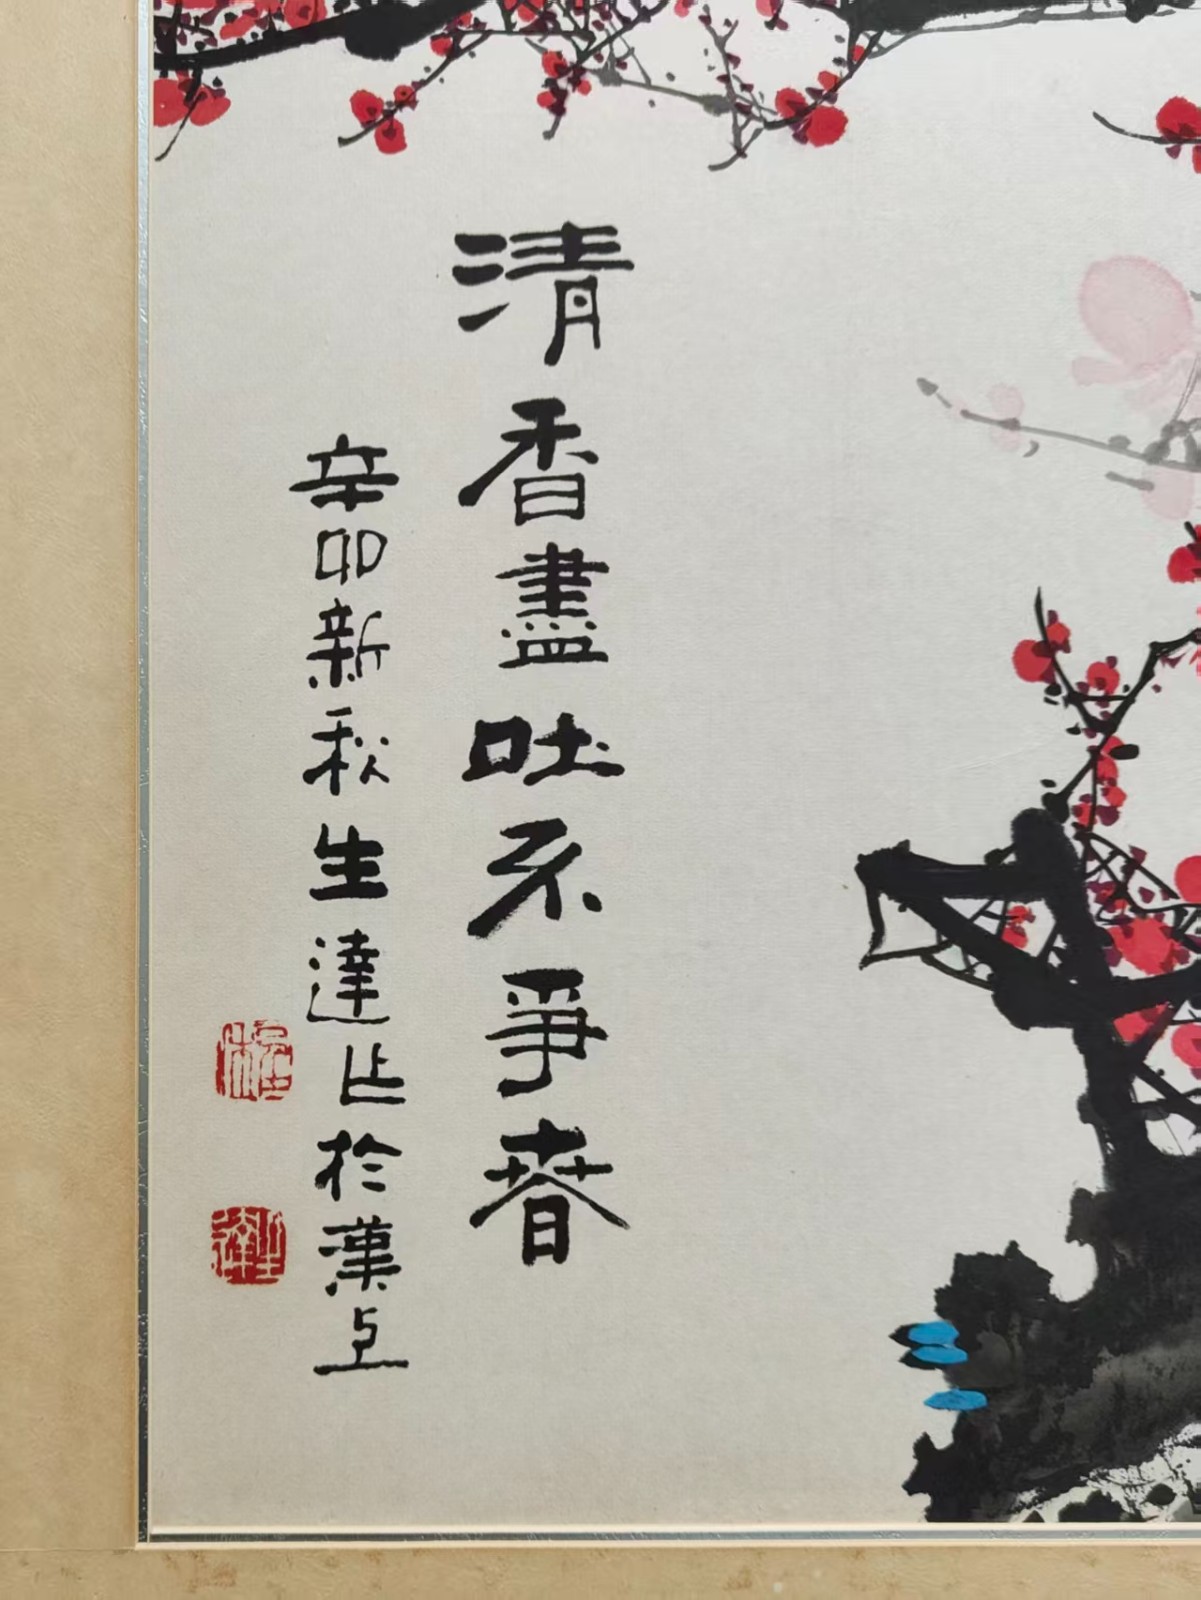 清香盡吐不爭春
辛卯新秋生達作於漢上
生達